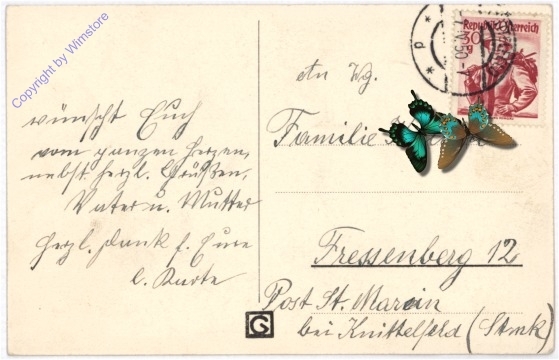 Copyright by Wimstore
Republik Österreich
30
g
An Wg.
Familie
Fressenberg 12
Post St. Marein
bei Knittelfeld (Stmk)
wünscht Euch
vom ganzen Herzen,
nebst herzl. Grüßen,
Vater u. Mutter
Herzl. Dank f. Eure
l. Karte
G